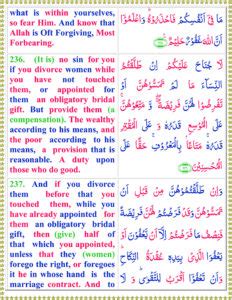 what is within yourselves,
so fear Him. And know that
Allah is Oft Forgiving, Most
Forbearing.
236. (It is) no sin for you
if you divorce women while
you have not touched
them, or appointed for
them an obligatory bridal
gift. But provide them (a
compensation). The wealthy
according to his means, and
the poor according to his
means, a provision that is
reasonable. A duty upon
those who do good.
237. And if you divorce
them before that you
touched them, while you
have already appointed for
them an obligatory bridal
gift, then (give) half of
that which you appointed,
unless that they (women)
forego the right, or foregoes
it he in whose hand is the
marriage contract. And to
مَا فِيْٓ اَنْفُسِكُمْ فَاحْذَرُوْهُ ۚ وَاعْلَمُوْٓا
اَنَّ اللّٰهَ غَفُوْرٌ حَلِيْمٌ
لَا جُنَاحَ عَلَيْكُمْ اِنْ طَلَّقْتُمُ
النِّسَآءَ مَا لَمْ تَمَسُّوْهُنَّ اَوْ
تَفْرِضُوْا لَهُنَّ فَرِيْضَةً ۖ وَّمَتِّعُوْهُنَّ
عَلَى الْمُوْسِعِ قَدَرُهٗ وَ عَلَى الْمُقْتِرِ
قَدَرُهٗ مَتَاعًا بِالْمَعْرُوْفِ حَقًّا عَلَى
الْمُحْسِنِيْنَ
وَاِنْ طَلَّقْتُمُوْهُنَّ مِنْ قَبْلِ اَنْ
تَمَسُّوْهُنَّ وَقَدْ فَرَضْتُمْ لَهُنَّ فَرِيْضَةً
فَنِصْفُ مَا فَرَضْتُمْ اِلَّآ اَنْ يَّعْفُوْنَ اَوْ
يَعْفُوَا الَّذِيْ بِيَدِهٖ عُقْدَةُ النِّكَاحِ
وَاَنْ تَعْفُوْٓا اَقْرَبُ لِلتَّقْوٰى